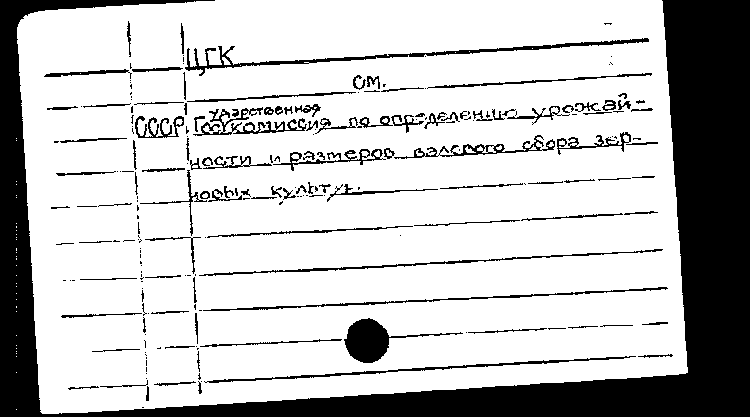 ЦГК
см.
СССР. Государственная комиссия по определению урожай-
ности и размеров валового сбора зер-
новых культур.